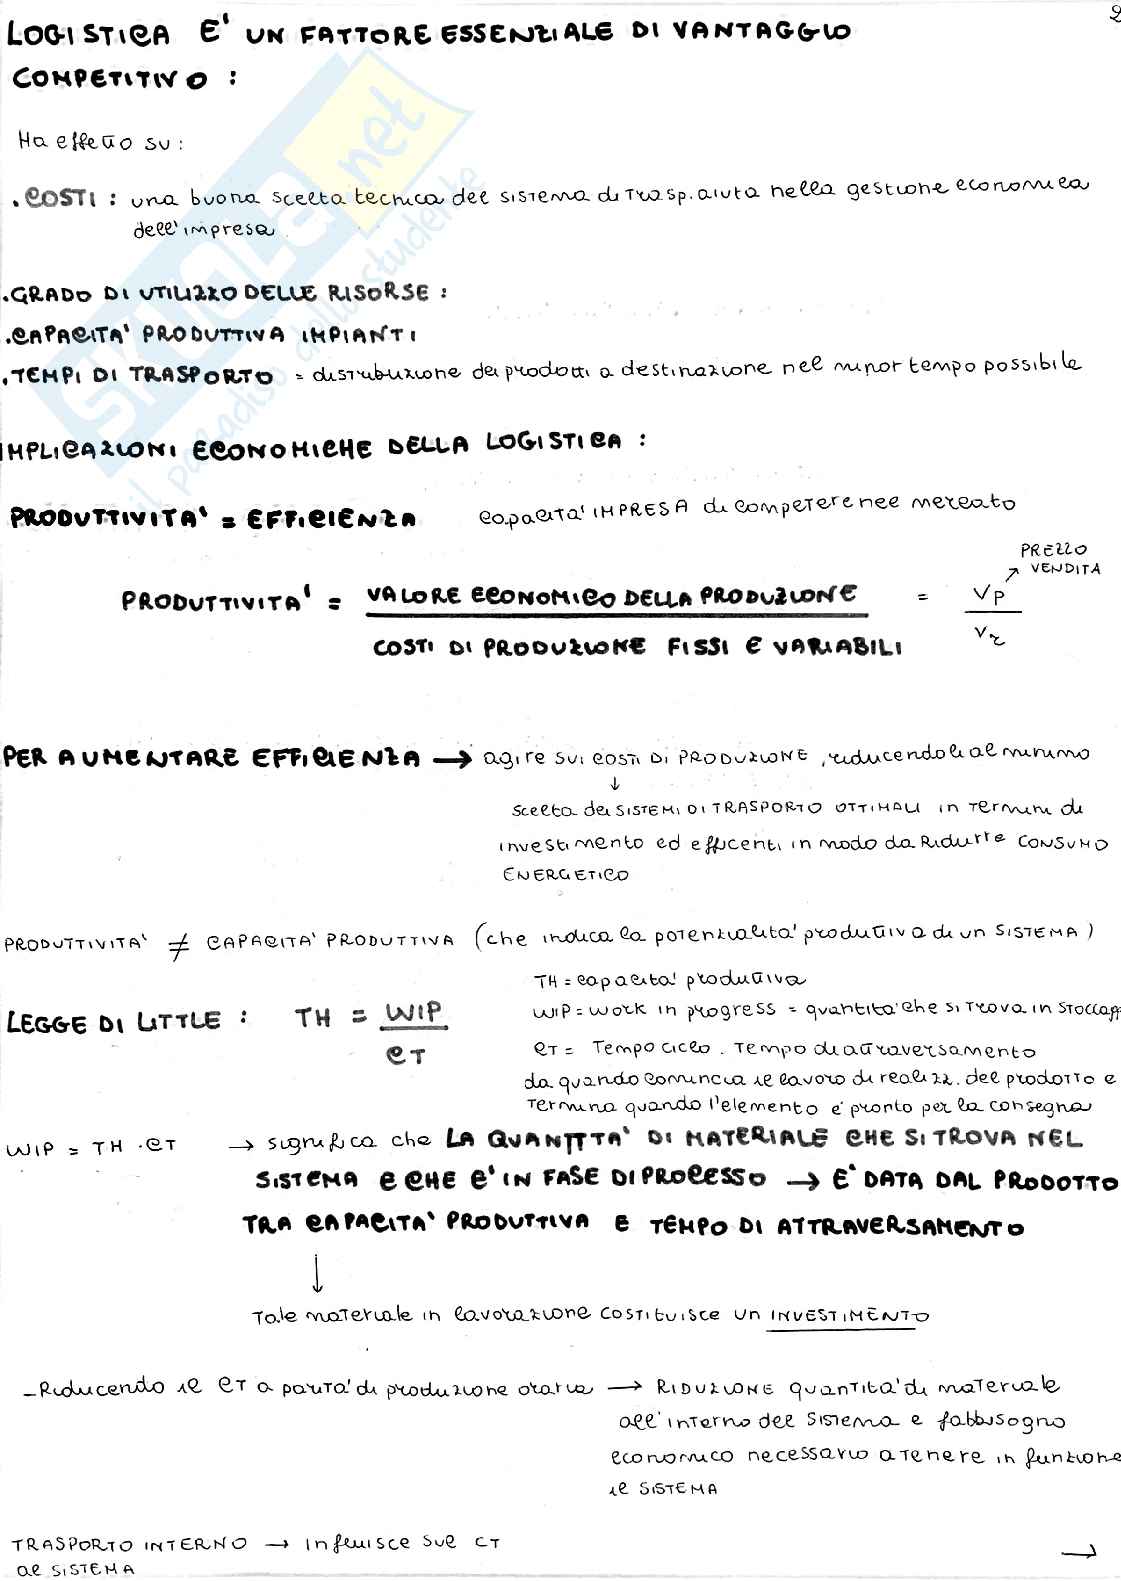 2
LOGISTICA E' UN FATTORE ESSENZIALE DI VANTAGGIO
COMPETITIVO :
Ha effetto su :
. COSTI : una buona scelta tecnica del sistema di trasp. aiuta nella gestione economica
dell'impresa
. GRADO DI UTILIZZO DELLE RISORSE :
. CAPACITA' PRODUTTIVA IMPIANTI
. TEMPI DI TRASPORTO = distribuzione dei prodotti a destinazione nel minor tempo possibile
IMPLICAZIONI ECONOMICHE DELLA LOGISTICA :
PRODUTTIVITA' = EFFICIENZA capacita' IMPRESA di competere nel mercato
PREZZO
VENDITA
PRODUTTIVITA' = VALORE ECONOMICO DELLA PRODUZIONE = Vp
COSTI DI PRODUZIONE FISSI E VARIABILI Vr
PER AUMENTARE EFFICIENZA → agire sui costi DI PRODUZIONE, riducendoli al minimo
↓
scelta dei SISTEMI DI TRASPORTO OTTIMALI in termini di
investimento ed efficienti in modo da Ridurre CONSUMO
ENERGETICO
PRODUTTIVITA' ≠ CAPACITA' PRODUTTIVA (che indica la potenzialita' produttiva di un SISTEMA)
TH = capacita' produttiva
LEGGE DI LITTLE : TH = WIP / CT
WIP = work in progress = quantita' che si trova in stoccagg
CT = Tempo ciclo . Tempo di attraversamento
da quando comincia il lavoro di realizz. del prodotto e
Termina quando l'elemento e' pronto per la consegna
WIP = TH · CT → significa che LA QUANTITA' DI MATERIALE CHE SI TROVA NEL
SISTEMA E CHE E' IN FASE DI PROCESSO → E' DATA DAL PRODOTTO
TRA CAPACITA' PRODUTTIVA E TEMPO DI ATTRAVERSAMENTO
↓
Tale materiale in lavorazione costituisce un INVESTIMENTO
- Riducendo il CT a parita' di produzione oraria → RIDUZIONE quantita' di materiale
all'interno del sistema e fabbisogno
economico necessario a tenere in funzione
il SISTEMA
TRASPORTO INTERNO → Influisce sul CT
al SISTEMA
→
SKUOLA.net
il paradiso dello studente